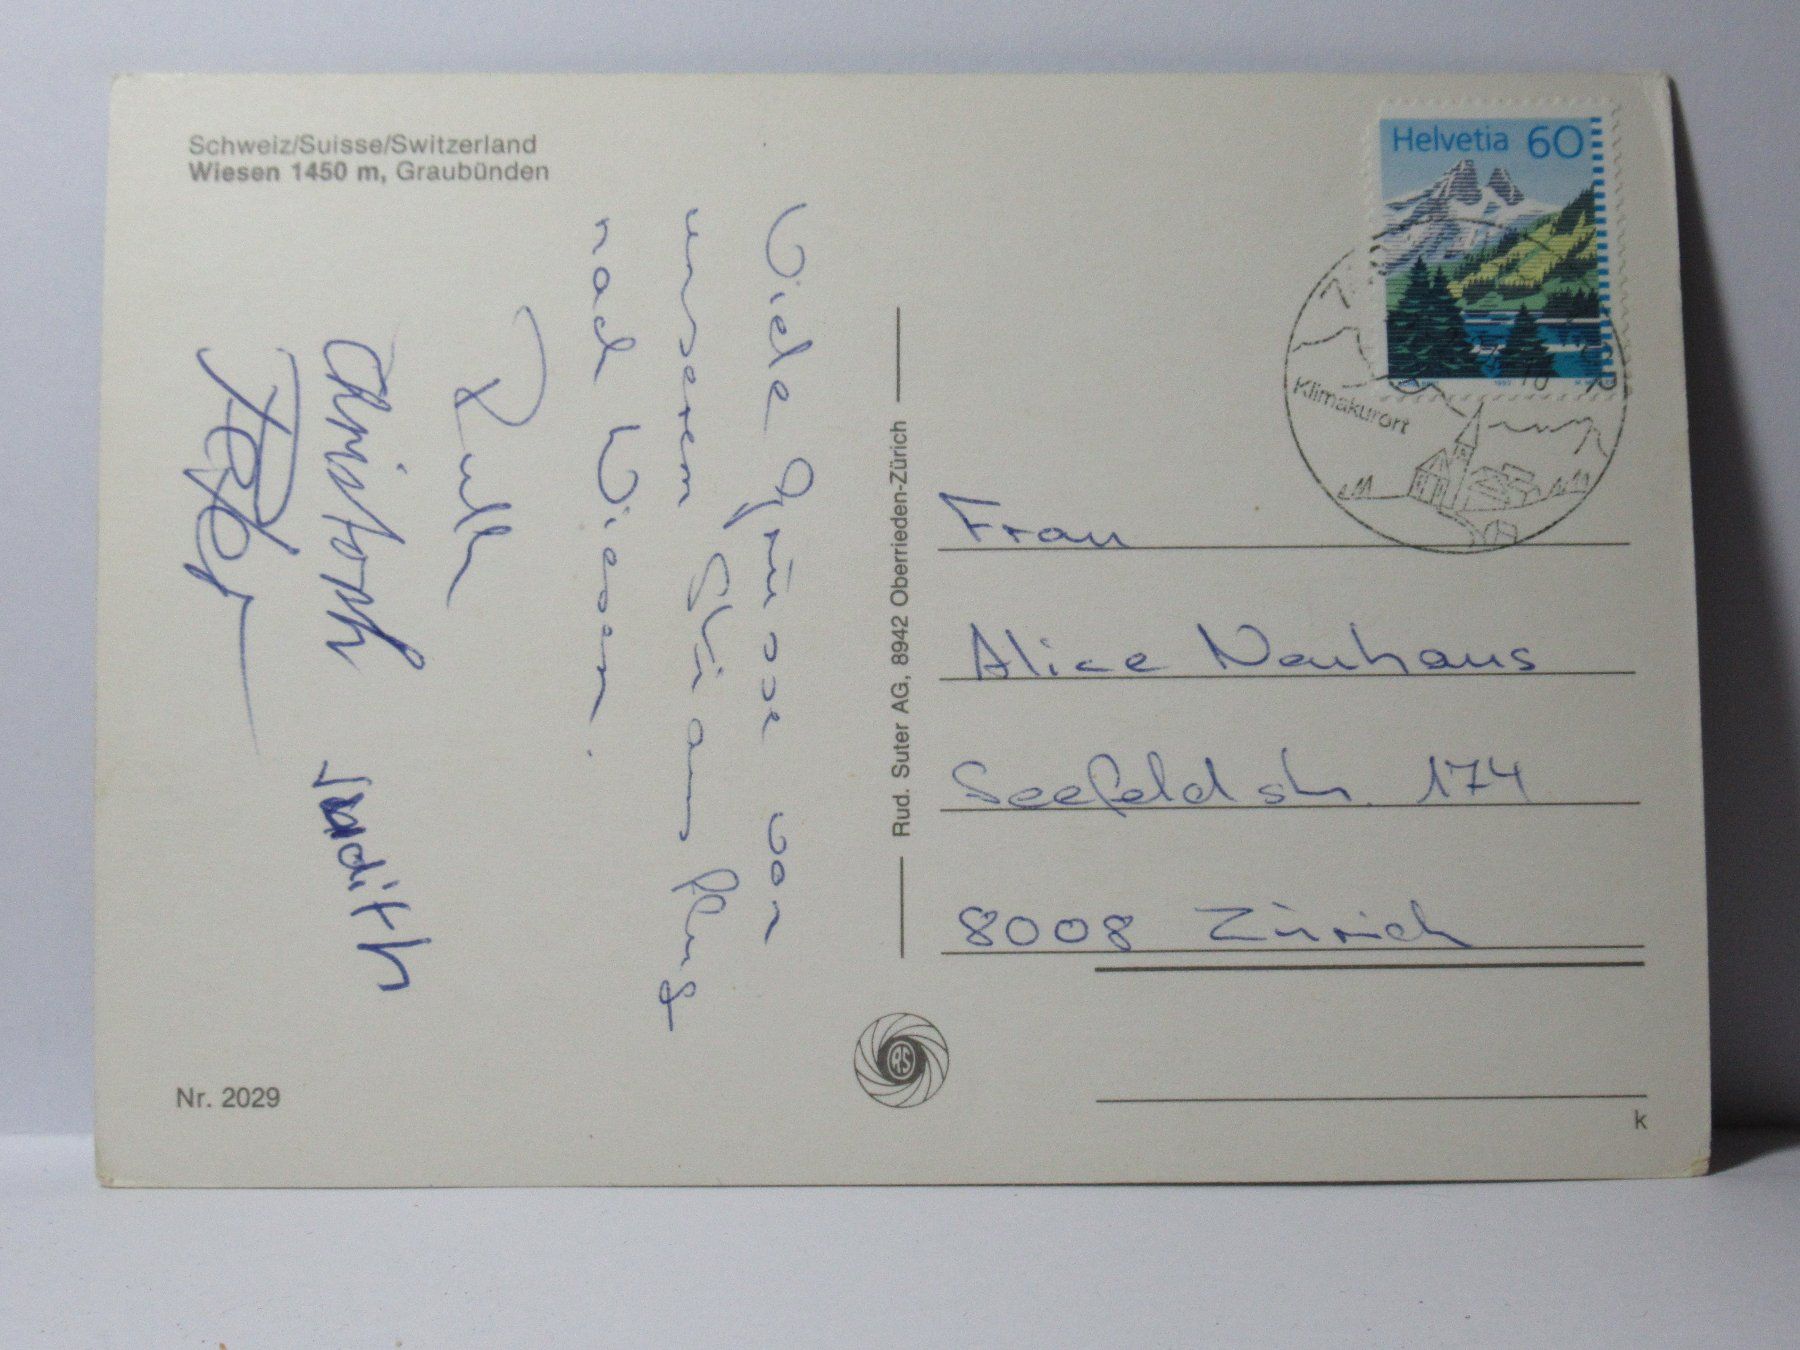 Schweiz/Suisse/Switzerland
Wiesen 1450 m, Graubünden
Viele Grüsse von
unserem Ski ausflug
nach Wiesen.
Ruth
Christoph Judith
Peter
Nr. 2029
Rud. Suter AG, 8942 Oberrieden-Zürich
RS
Helvetia 60
Klimakurort
Frau
Alice Neuhaus
Seefeldstr. 174
8008 Zürich
k